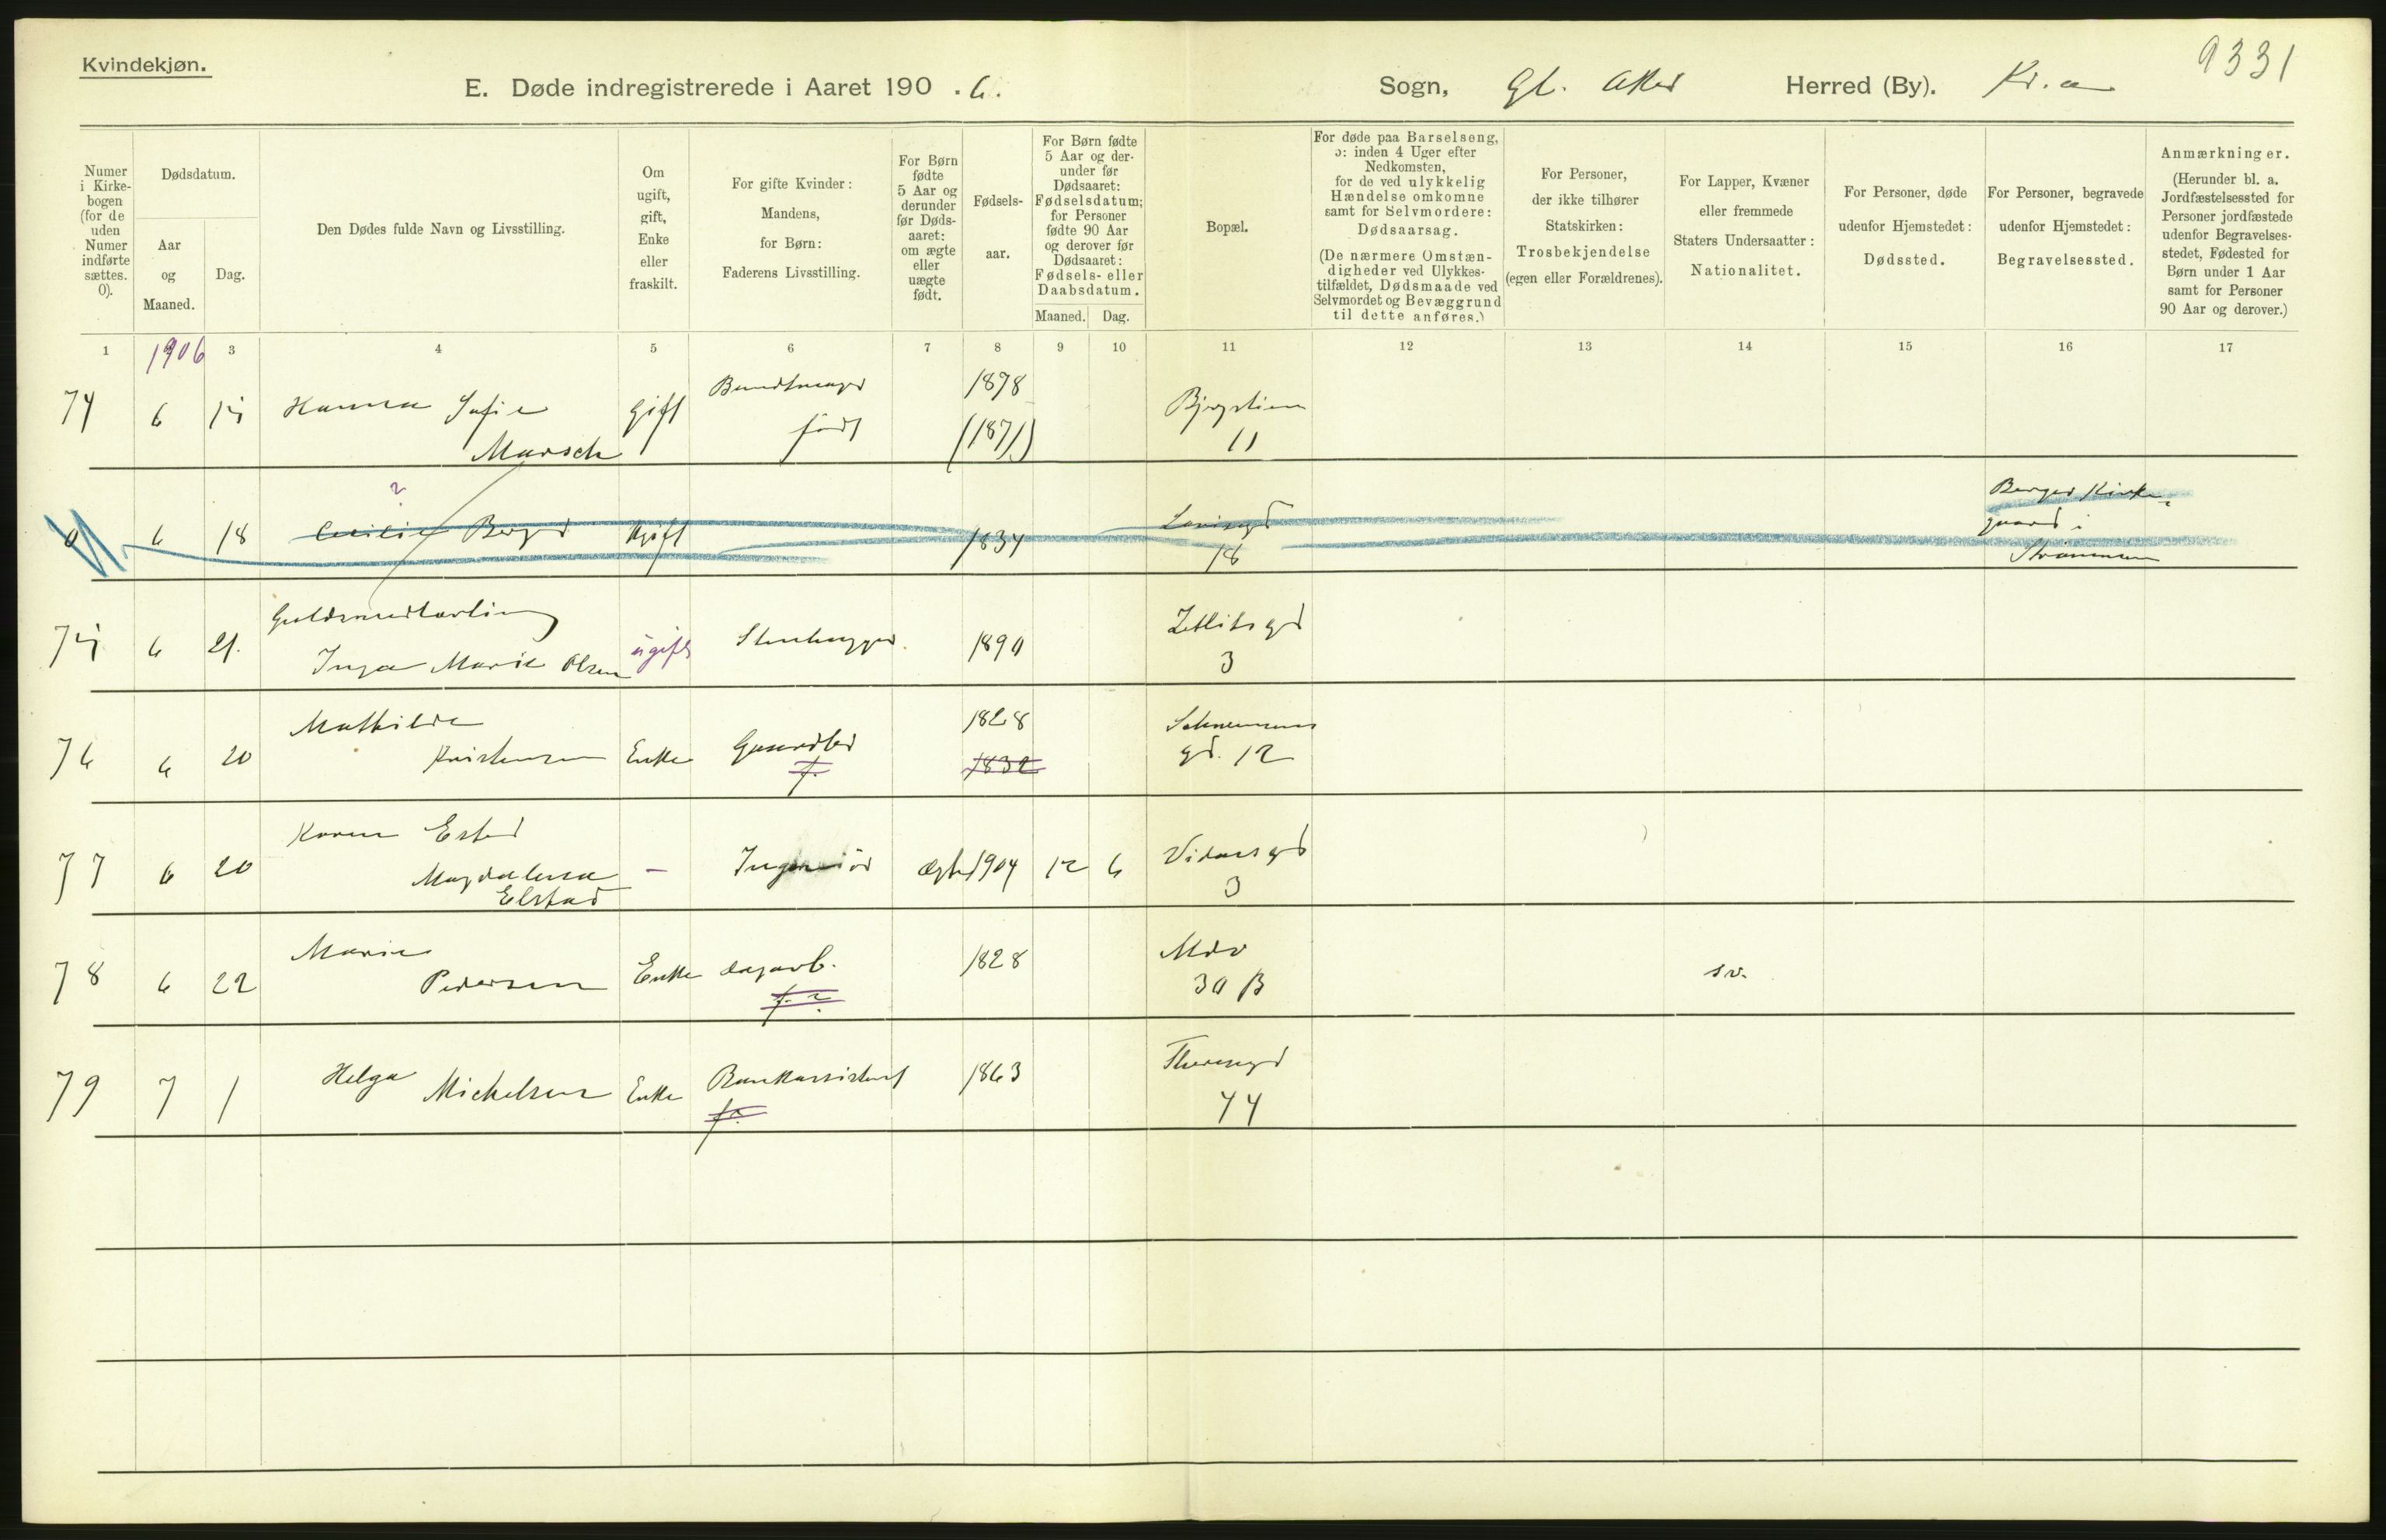 Kvindekjøn.
9331
E. Døde indregistrerede i Aaret 190.6. Sogn, Gl. Aker Herred (By). Kr.a
Numer i Kirkebogen (for de uden Numer indførte sættes. 0).
Dødsdatum.
Aar og Maaned.
Dag.
Den Dødes fulde Navn og Livsstilling.
Om ugift, gift, Enke eller fraskilt.
For gifte Kvinder: Mandens, for Børn: Faderens Livsstilling.
For Børn fødte 5 Aar og derunder før Dødsaaret: om ægte eller uægte født.
Fødselsaar.
For Børn fødte 5 Aar og derunder før Dødsaaret: Fødselsdatum; for Personer fødte 90 Aar og derover før Dødsaaret: Fødsels- eller Daabsdatum.
Maaned. Dag.
Bopæl.
For døde paa Barselseng, ɔ: inden 4 Uger efter Nedkomsten, for de ved ulykkelig Hændelse omkomne samt for Selvmordere: Dødsaarsag.
(De nærmere Omstændigheder ved Ulykkestilfældet, Dødsmaade ved Selvmordet og Bevæggrund til dette anføres.)
For Personer, der ikke tilhører Statskirken: Trosbekjendelse (egen eller Forældrenes).
For Lapper, Kvæner eller fremmede Staters Undersaatter: Nationalitet.
For Personer, døde udenfor Hjemstedet: Dødssted.
For Personer, begravede udenfor Hjemstedet: Begravelsessted.
Anmærkninger.
(Herunder bl. a. Jordfæstelsessted for Personer jordfæstede udenfor Begravelsesstedet, Fødested for Børn under 1 Aar samt for Personer 90 Aar og derover.)
1 1906 3 4 5 6 7 8 9 10 11 12 13 14 15 16 17
74 6 15 Hanna Sofie Gift Bundtmager 1878 Bjergstien
Marsch født (1871) 11
?
0 6 18 Cecilie Berger Ugift 1834 Louisegd 18 Berger Kirke-
gaard i
Strømmen
75 6 21. Guldsmedlærling
Inga Marie Olsen ugift Stenhugger 1890 Zetlitsgd 3
76 6 20 Mathilde 1828
Kristensen Enke Gaardbr f. 1832 gd. 12
77 6 20 Karen Ester
Magdalena
Elstad — Ingeniør Ægte 1904 12 6 Vidarsgd 3
78 6 22 Marie
Pedersen Enke dagarb. f. ? 1828 Mdv 30 B sv.
79 7 1 Helga Michelsen Enke Bankassistent f. 1863 Theresegd 44